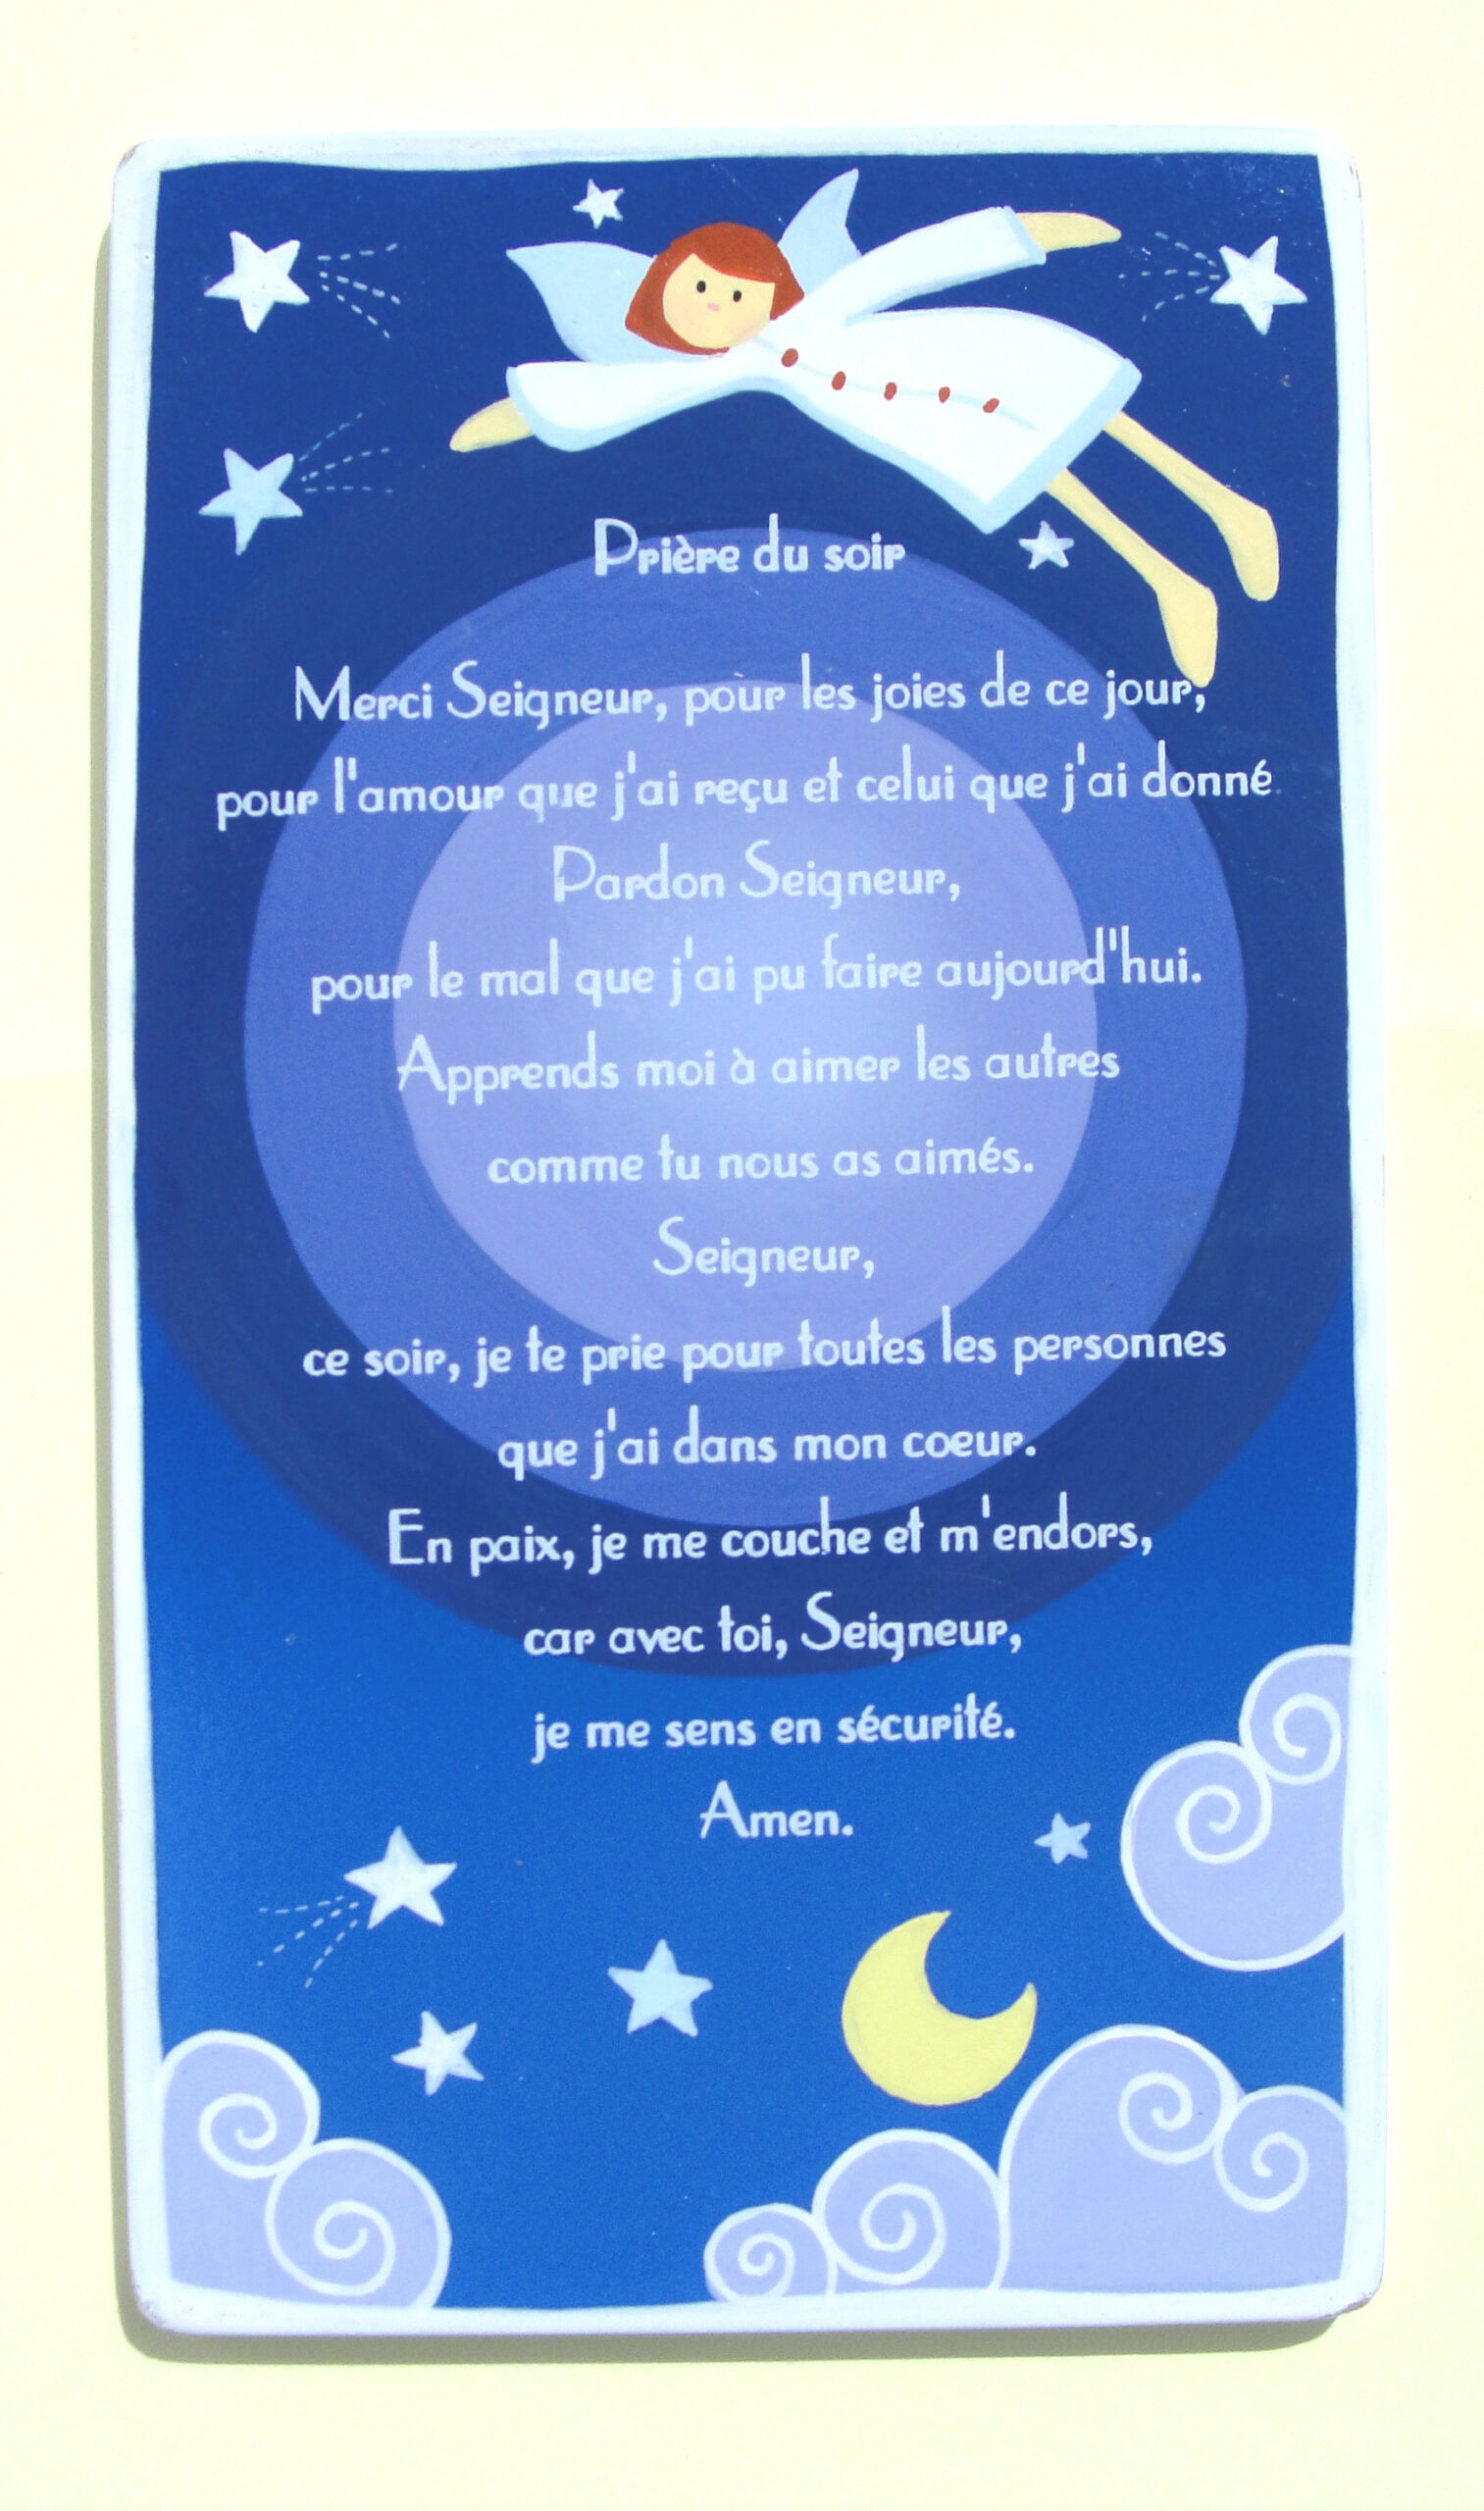 Prière du soir
Merci Seigneur, pour les joies de ce jour,
pour l'amour que j'ai reçu et celui que j'ai donné.
Pardon Seigneur,
pour le mal que j'ai pu faire aujourd'hui.
Apprends moi à aimer les autres
comme tu nous as aimés.
Seigneur,
ce soir, je te prie pour toutes les personnes
que j'ai dans mon coeur.
En paix, je me couche et m'endors,
car avec toi, Seigneur,
je me sens en sécurité.
Amen.